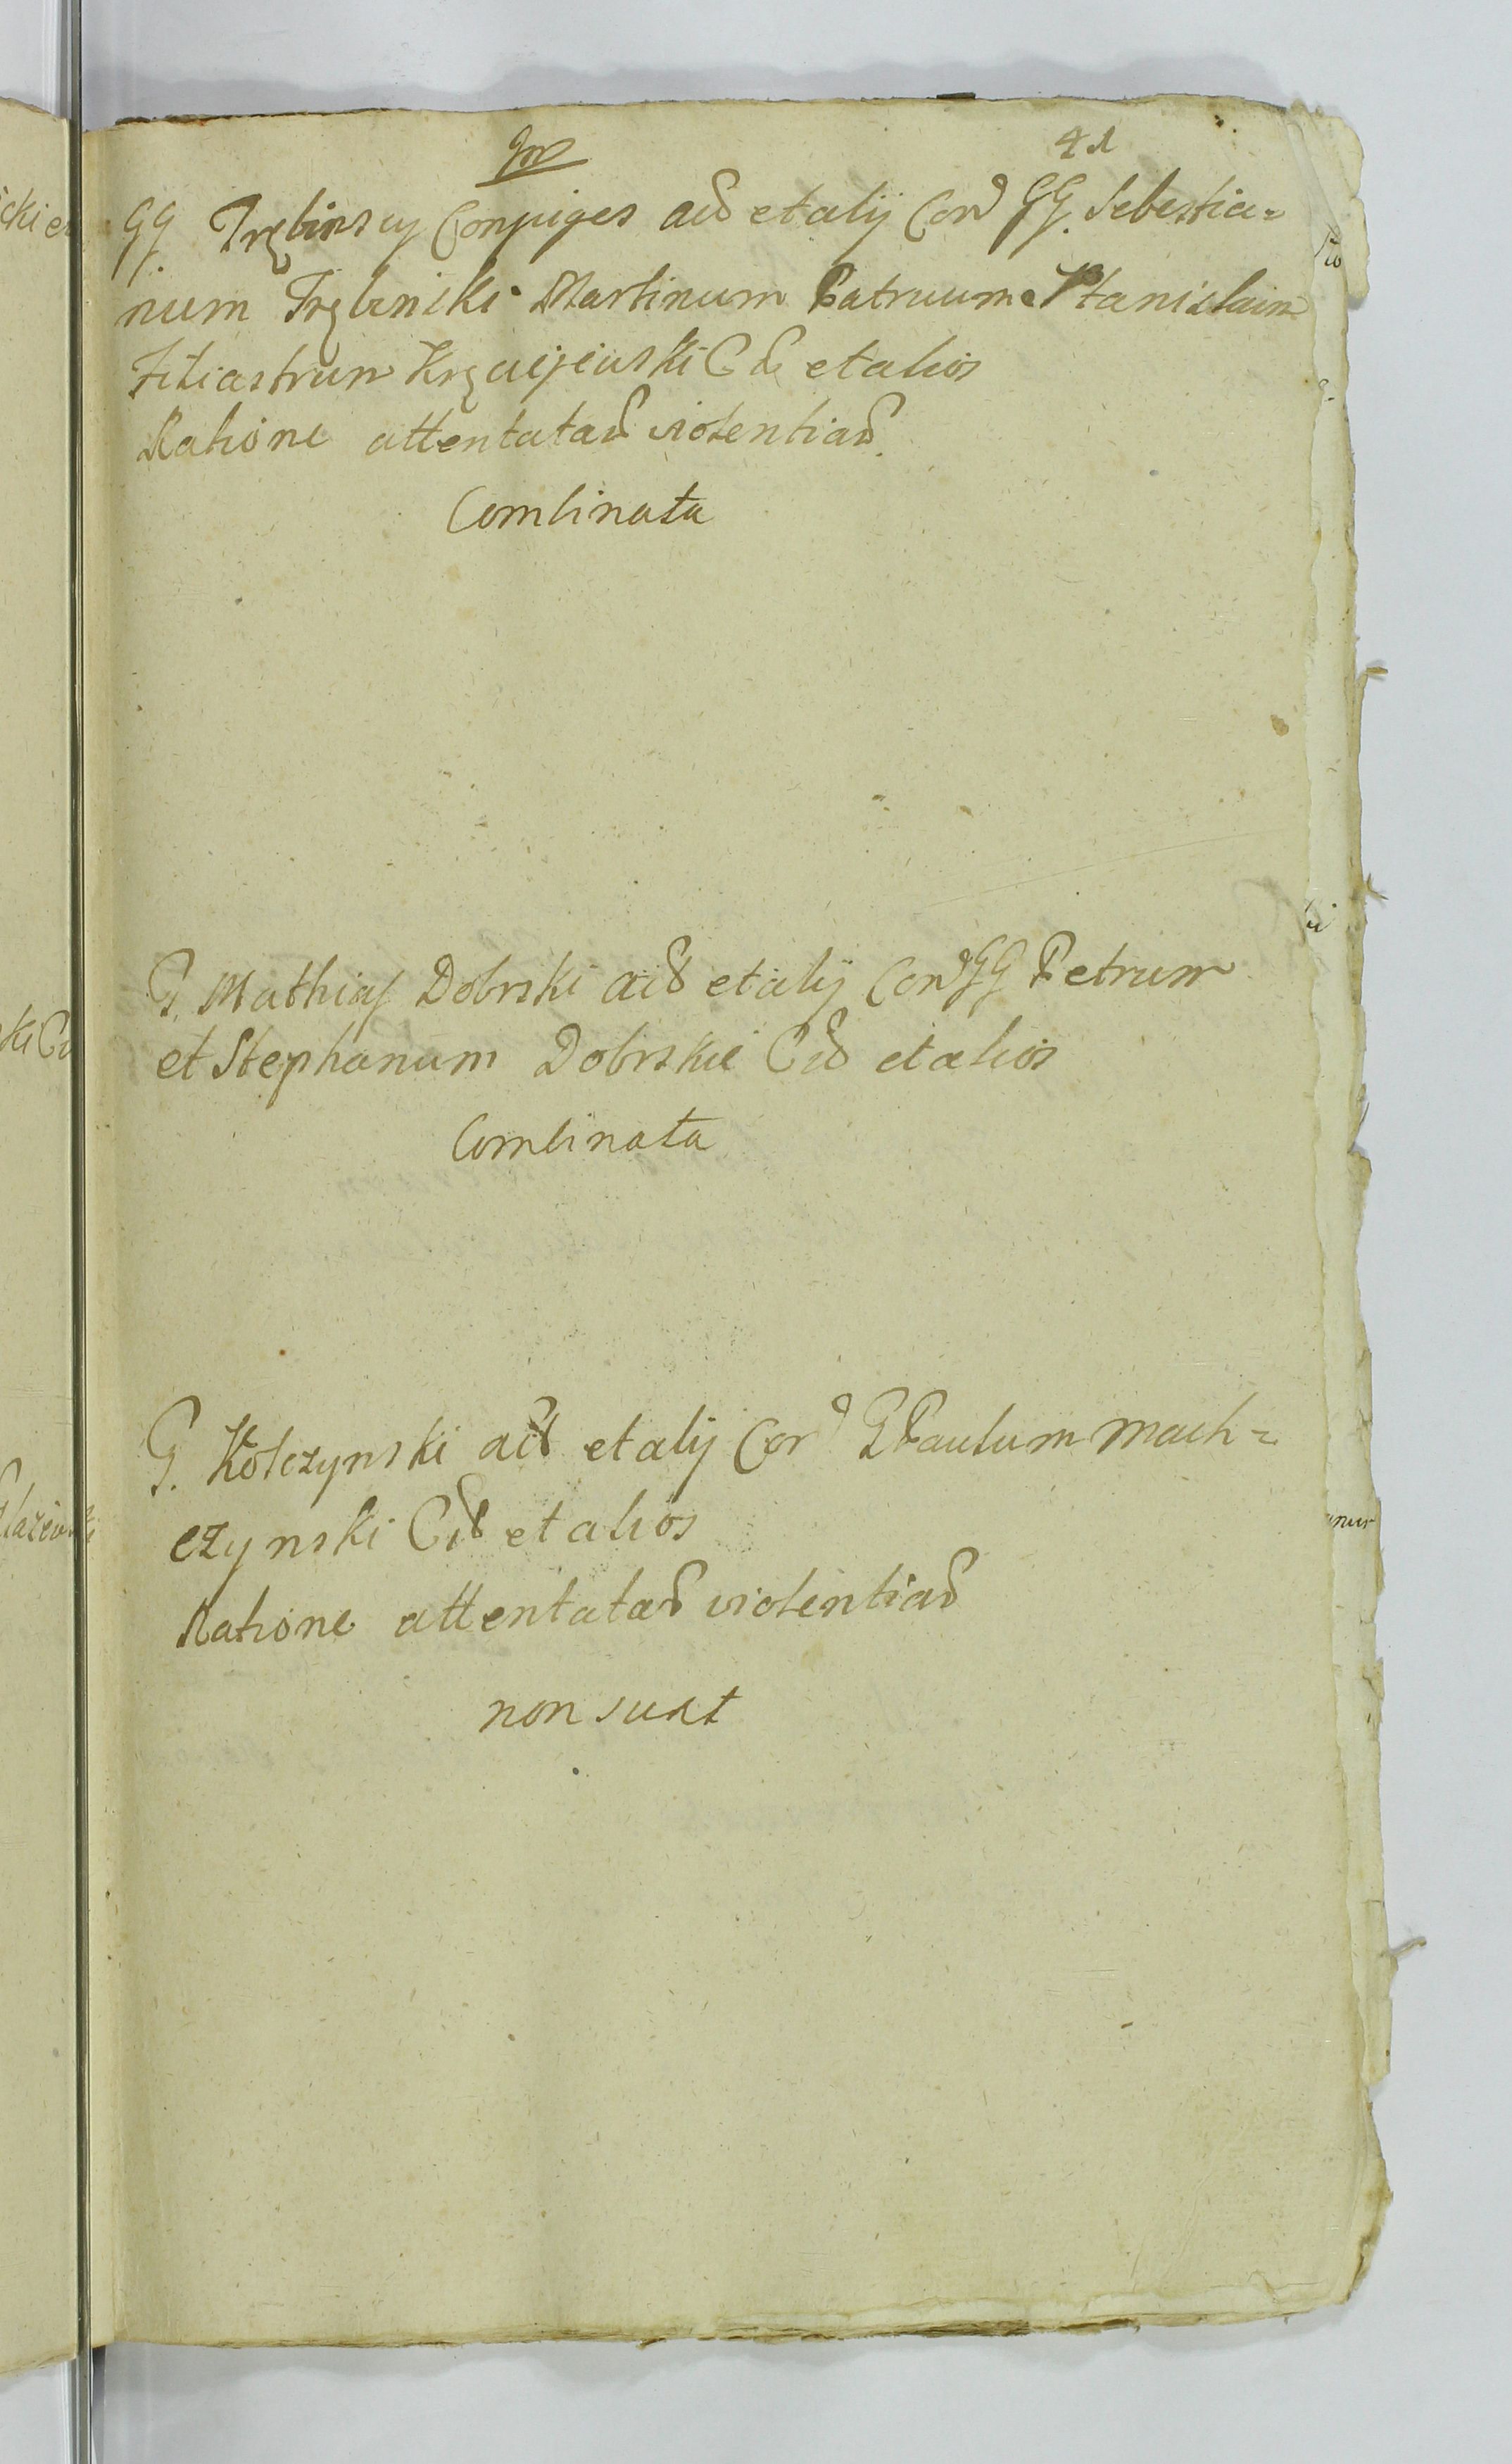 41
GG. Trębinscy Conjuges acð et alij Con GG. Sebestia=
num Trębinski Martinum Patruum Stanislaum
Filiastrum et alios
Ratione attentatað violentiað
Combinata
G. Mathias Dobrski acð et alij Con GG Petrum
et Stephanum Dobrskie Cið et alios
Combinata
G. Kolczynski acð et alij Con G Paulum Mach=
czynski Cið et alios
Ratione attentatað violentiað
non sunt